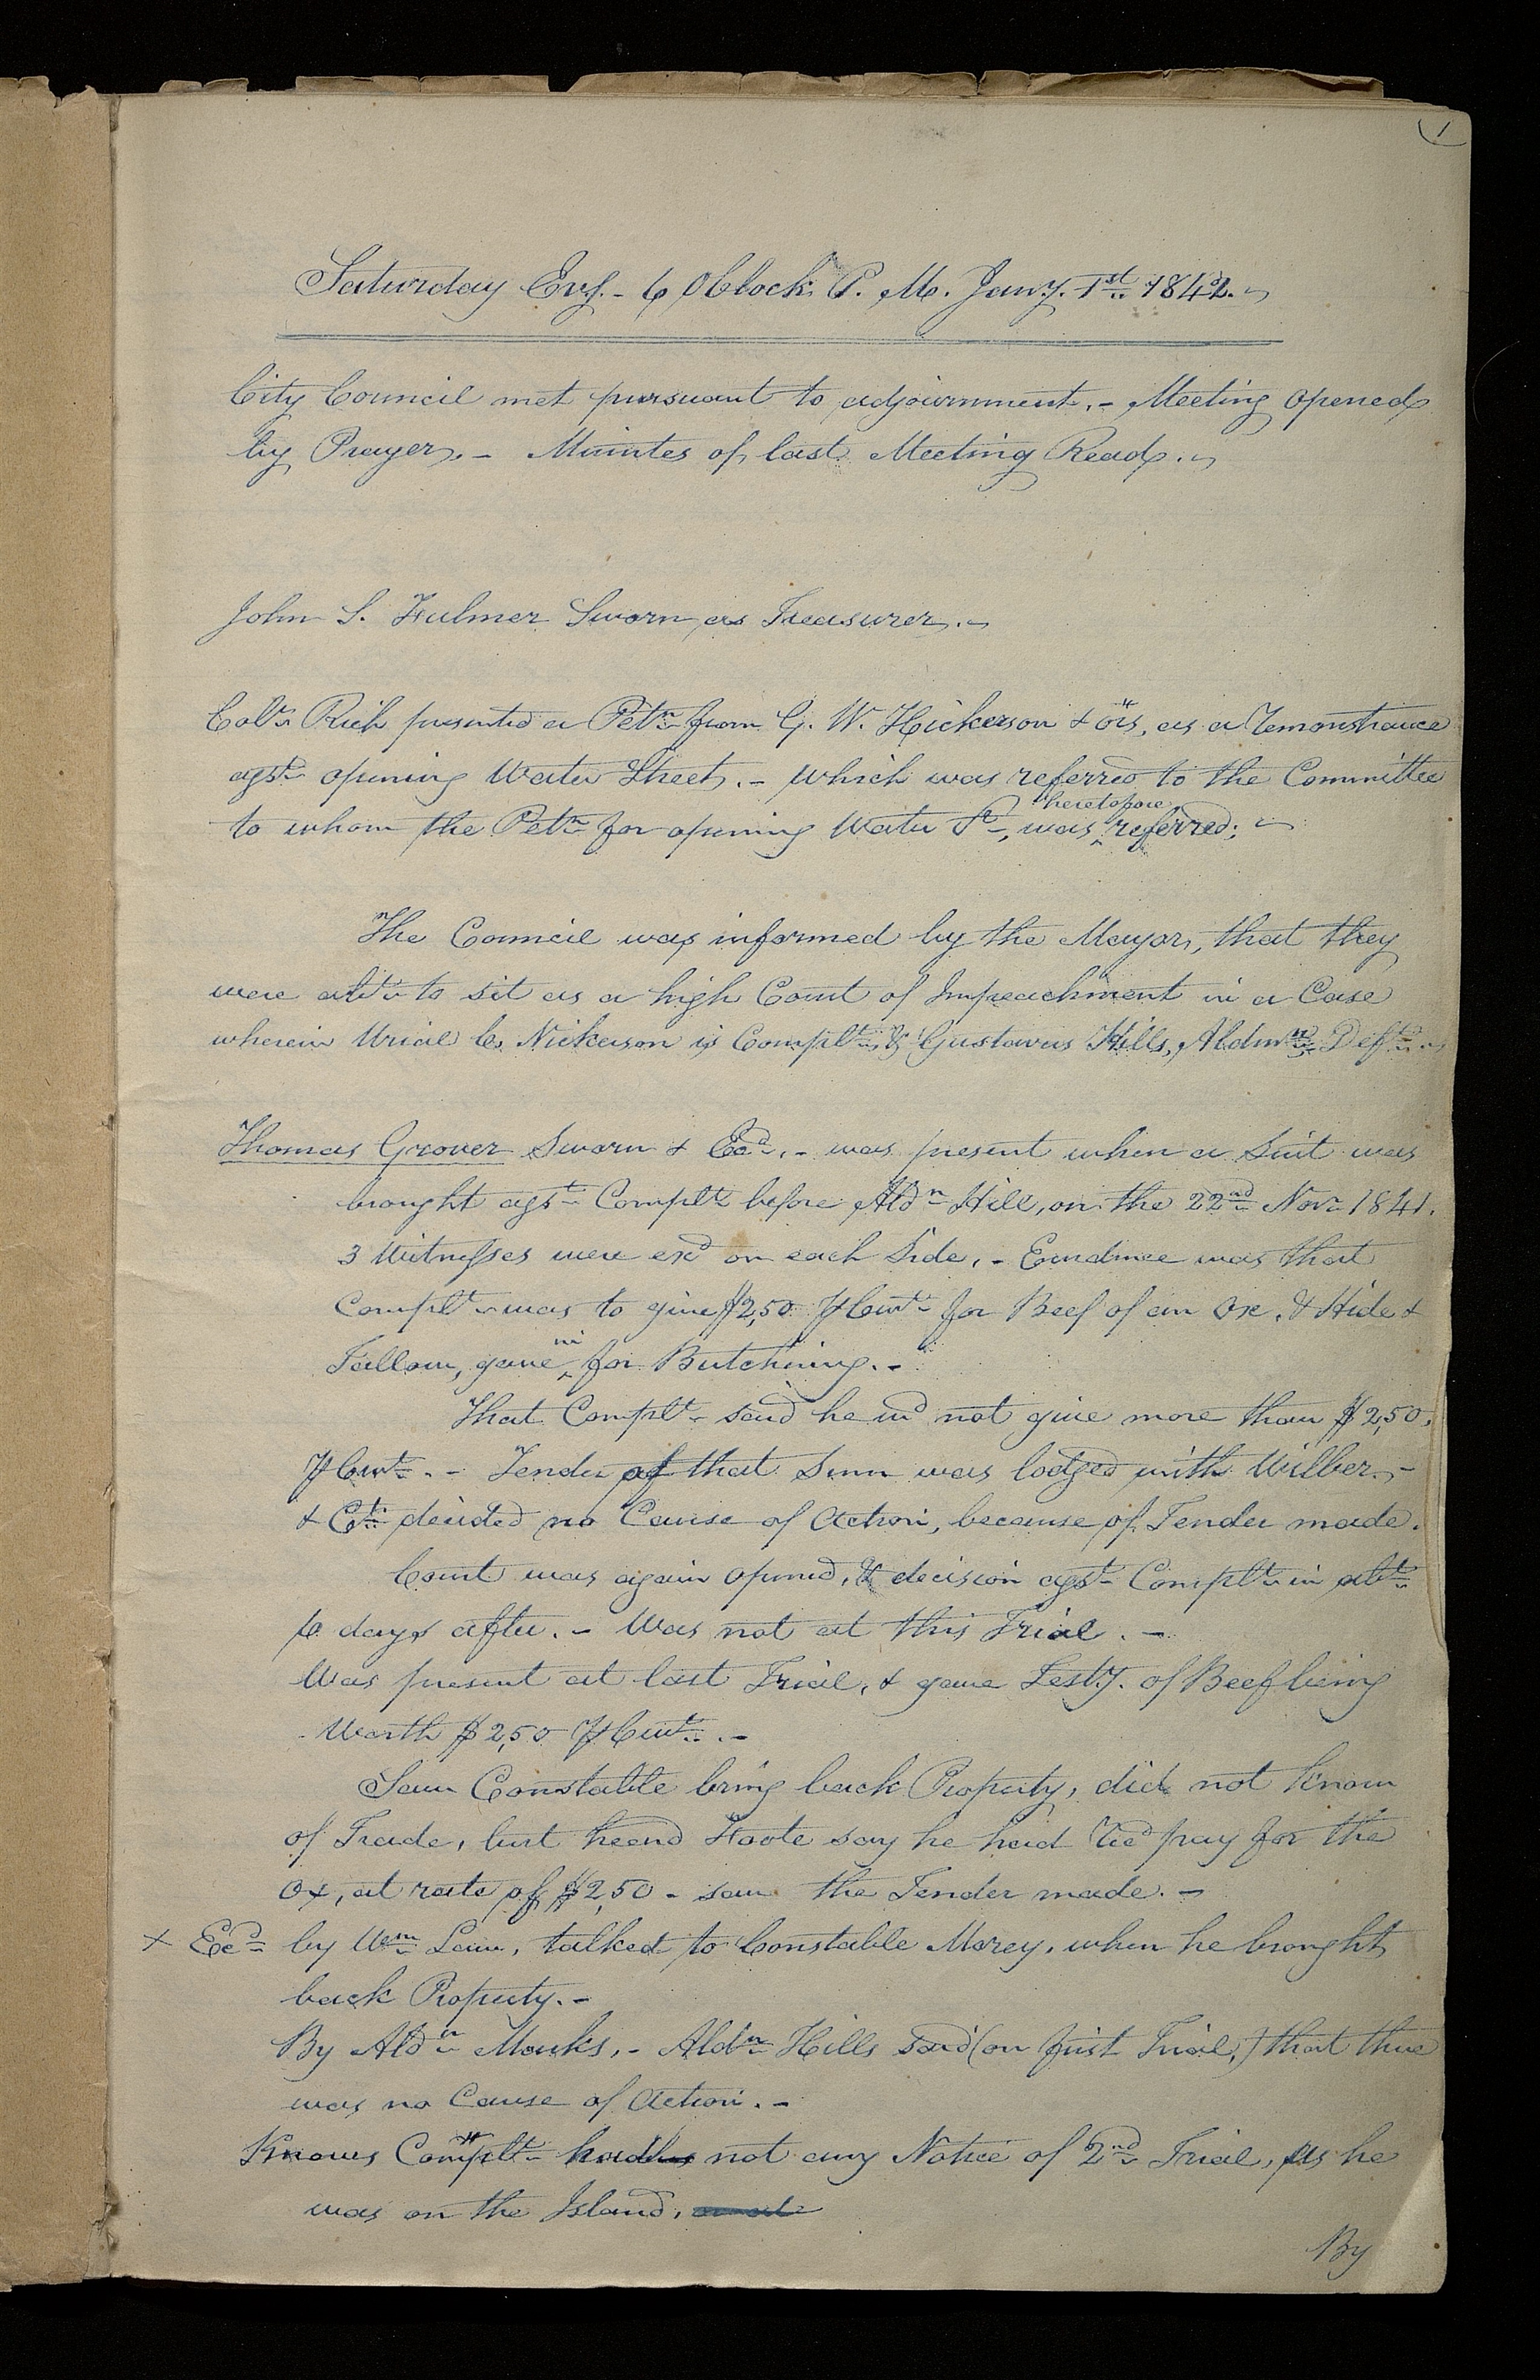 1
Saturday Evg.- 6 OClock P. M. Jany. 1st 1842.
City Council met pursuant to adjournment.- Meeting opened
by Prayer.- Minutes of last Meeting Read.
John S. Fulmer Sworn as Treasurer.-
Colr Rich presented a Petn from G. W. Hickerson & ors, as a remonstrance
agst opening Water Street.- which was referred to the Committee
heretofore
to whom the Petn for opening Water St, was ^ referred;
The Council was informed by the Mayor, that they
were abt to sit as a high Court of Impeachment in a Case
wherein Uriel C. Nickerson is Complt & Gustavus Hills, Aldmn Deft.
Thomas Grover Sworn & Exd.- was present when a Suit was
brought agst Complt before Aldn Hill, on the 22nd Nov 1841.
3 Witnesses were exd on each Side.- Evidence was that
Complt was to give $2,50 ⅌ Cwt for Beef of an Ox, & Hide &
in
Tallow, gave ^ for Butchering.-
That Complt said he wd not give more than $2,50,
⅌ Cwt.- Tender of that Sum was lodged with Wilber,-
& Ct decided no Cause of Action, because of Tender made.
Court was again opened, & decision agst Complt in abt
6 days after.- Was not at this Trial.-
Was present at last Trial, & gave Testy. of Beef being
Worth $2,50 ⅌ Cwt.-
Saw Constable bring back Property, did not know
of Trade, but heard Foote say he had recd pay for the
Ox, at rate of $2,50 - saw the Tender made.-
× Exd by Wm Law, talked to Constable Morey, when he brought
back Property.-
By Aldn Marks,- Aldn Hills said (on first Trial,) that there
was no Cause of Action.-
Knows Complt had not any Notice of 2nd Trial, as he
was on the Island,
By